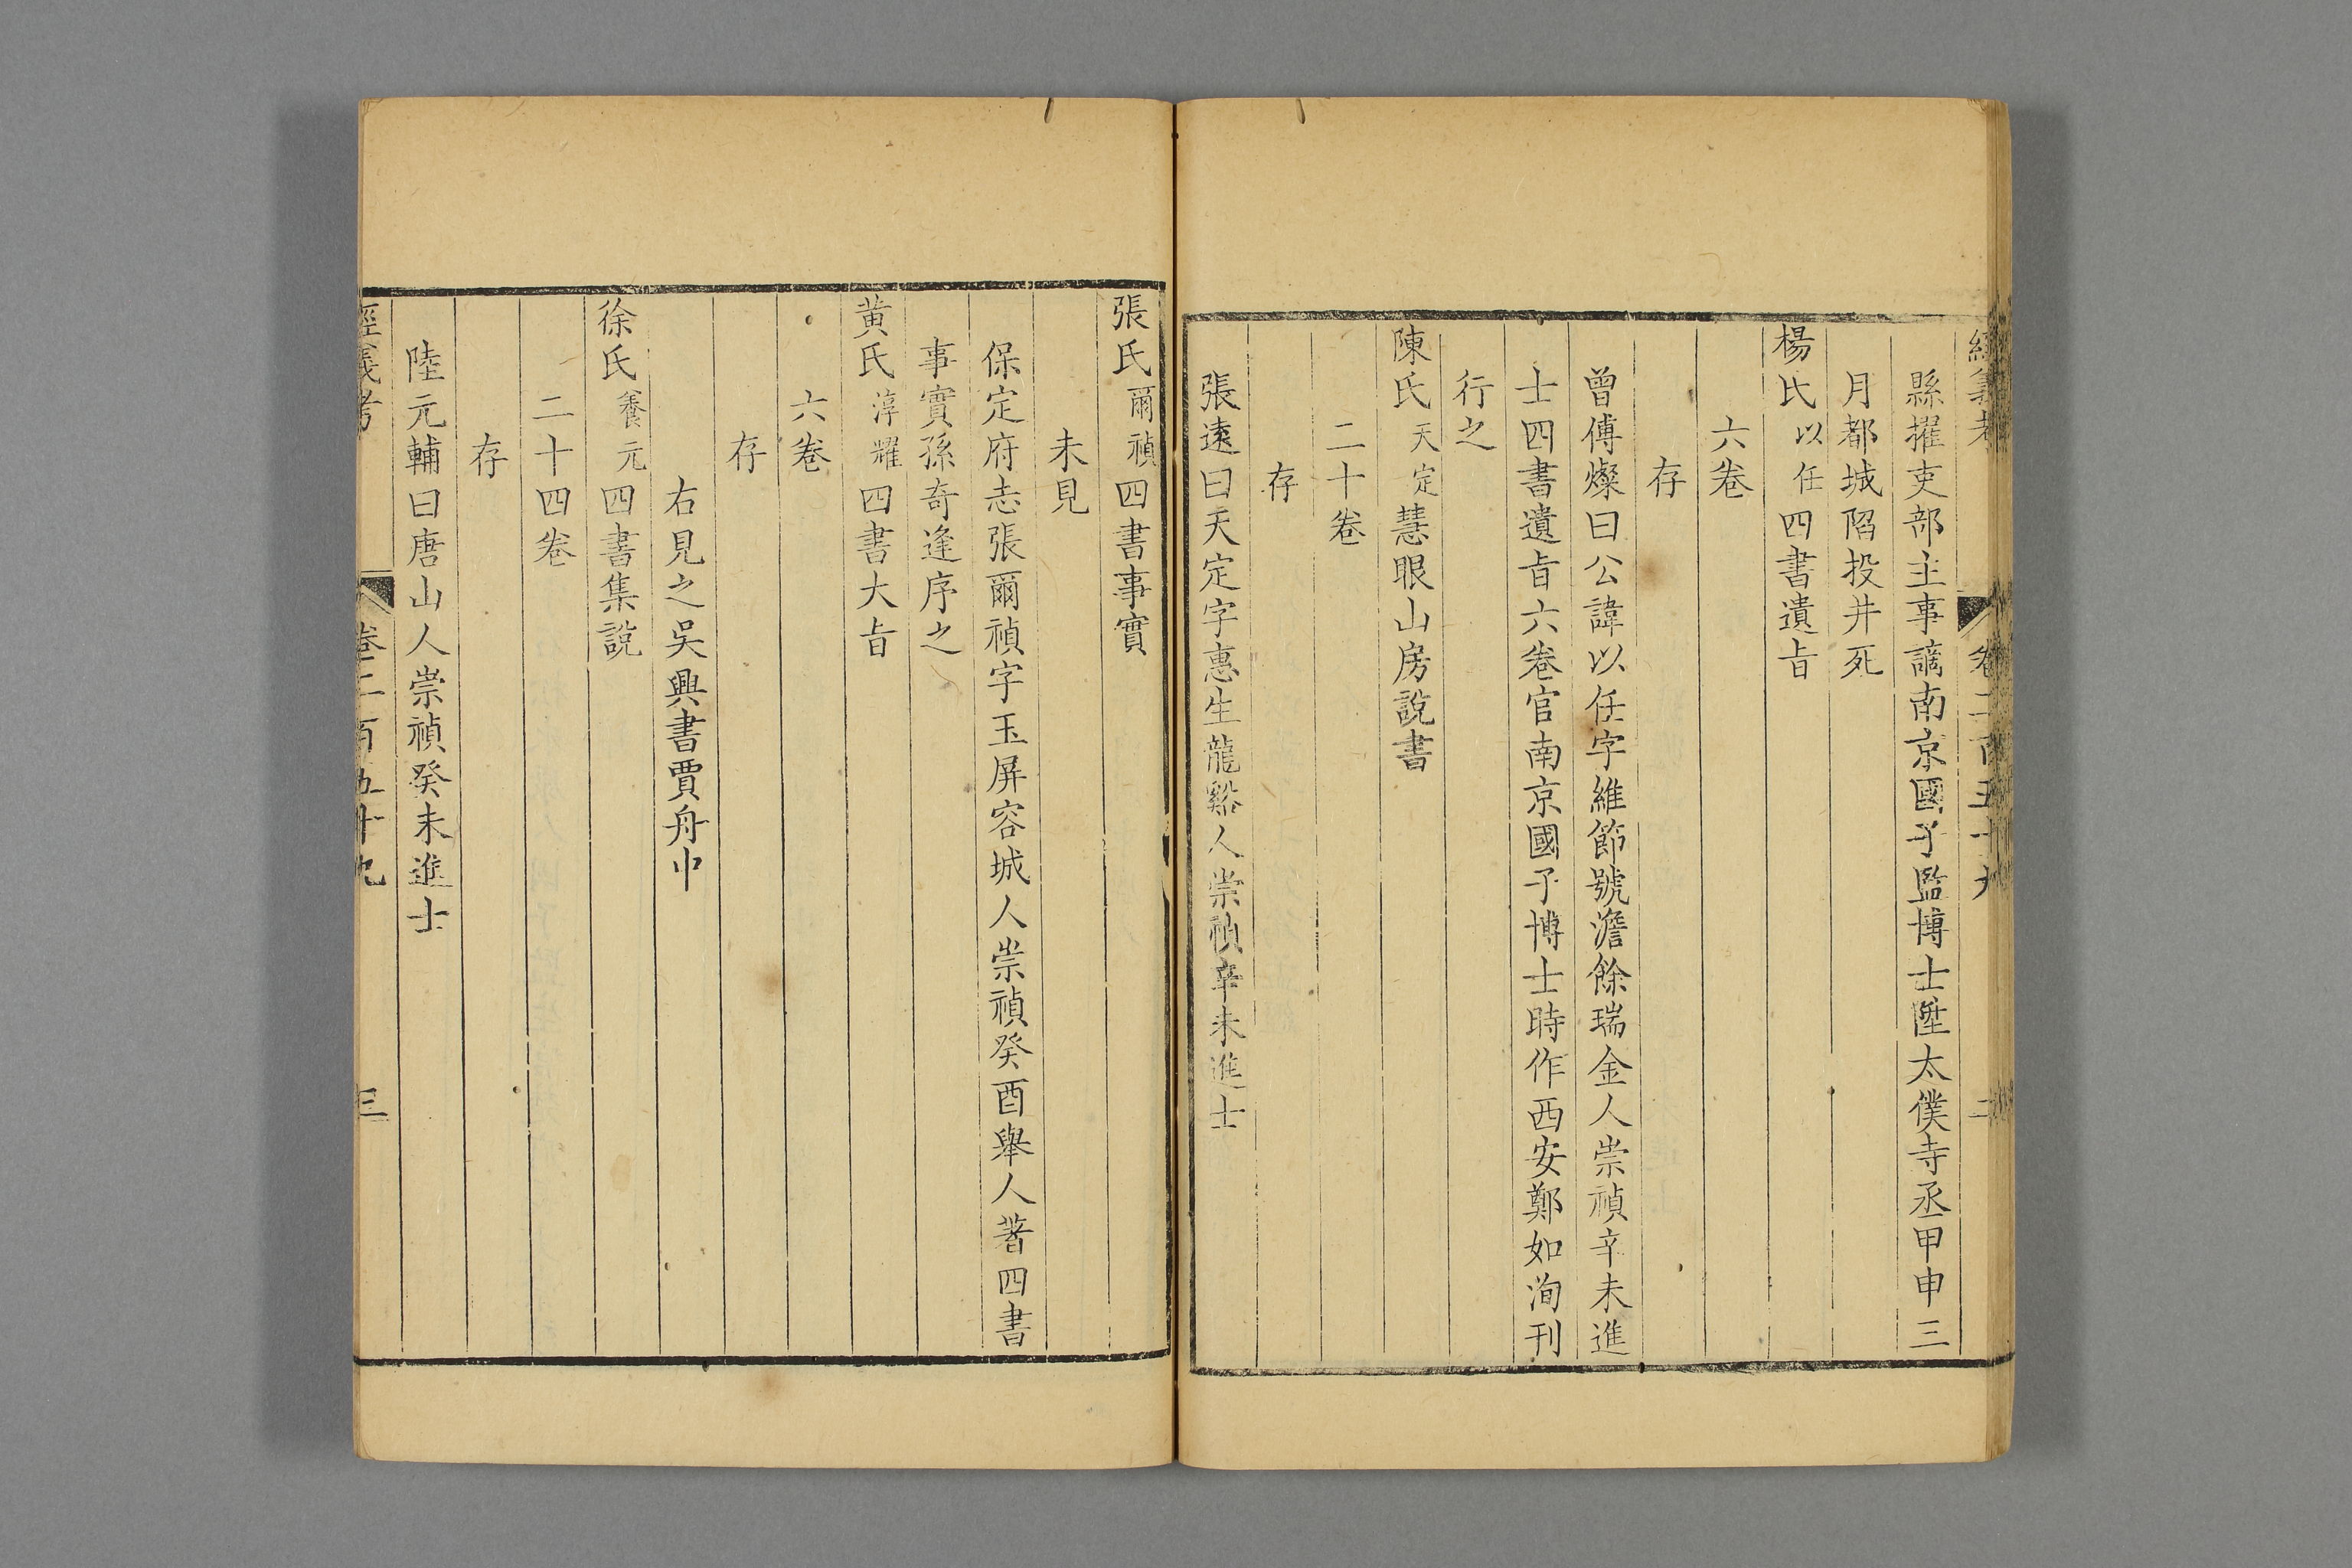 經義考 卷二百五十九 二
縣擢吏部主事謫南京國子監博士陞太僕寺丞甲申三
月都城陷投井死
楊氏以任四書遺旨
六卷
存
曾傅燦曰公諱以任字維節號澹餘瑞金人崇禎辛未進
士四書遺旨六卷官南京國子博士時作西安鄭如洵刊
行之
陳氏天定慧眼山房說書
二十卷
存
張遠曰天定字惠生龍谿人崇禎辛未進士
張氏爾禎四書事實
未見
保定府志張爾禎字玉屏容城人崇禎癸酉舉人著四書
事實孫奇逢序之
黄氏淳耀四書大旨
六卷
存
右見之吳興書賈舟中
徐氏養元四書集說
二十四卷
存
陸元輔曰唐山人崇禎癸未進士
經義考 卷二百五十九 三